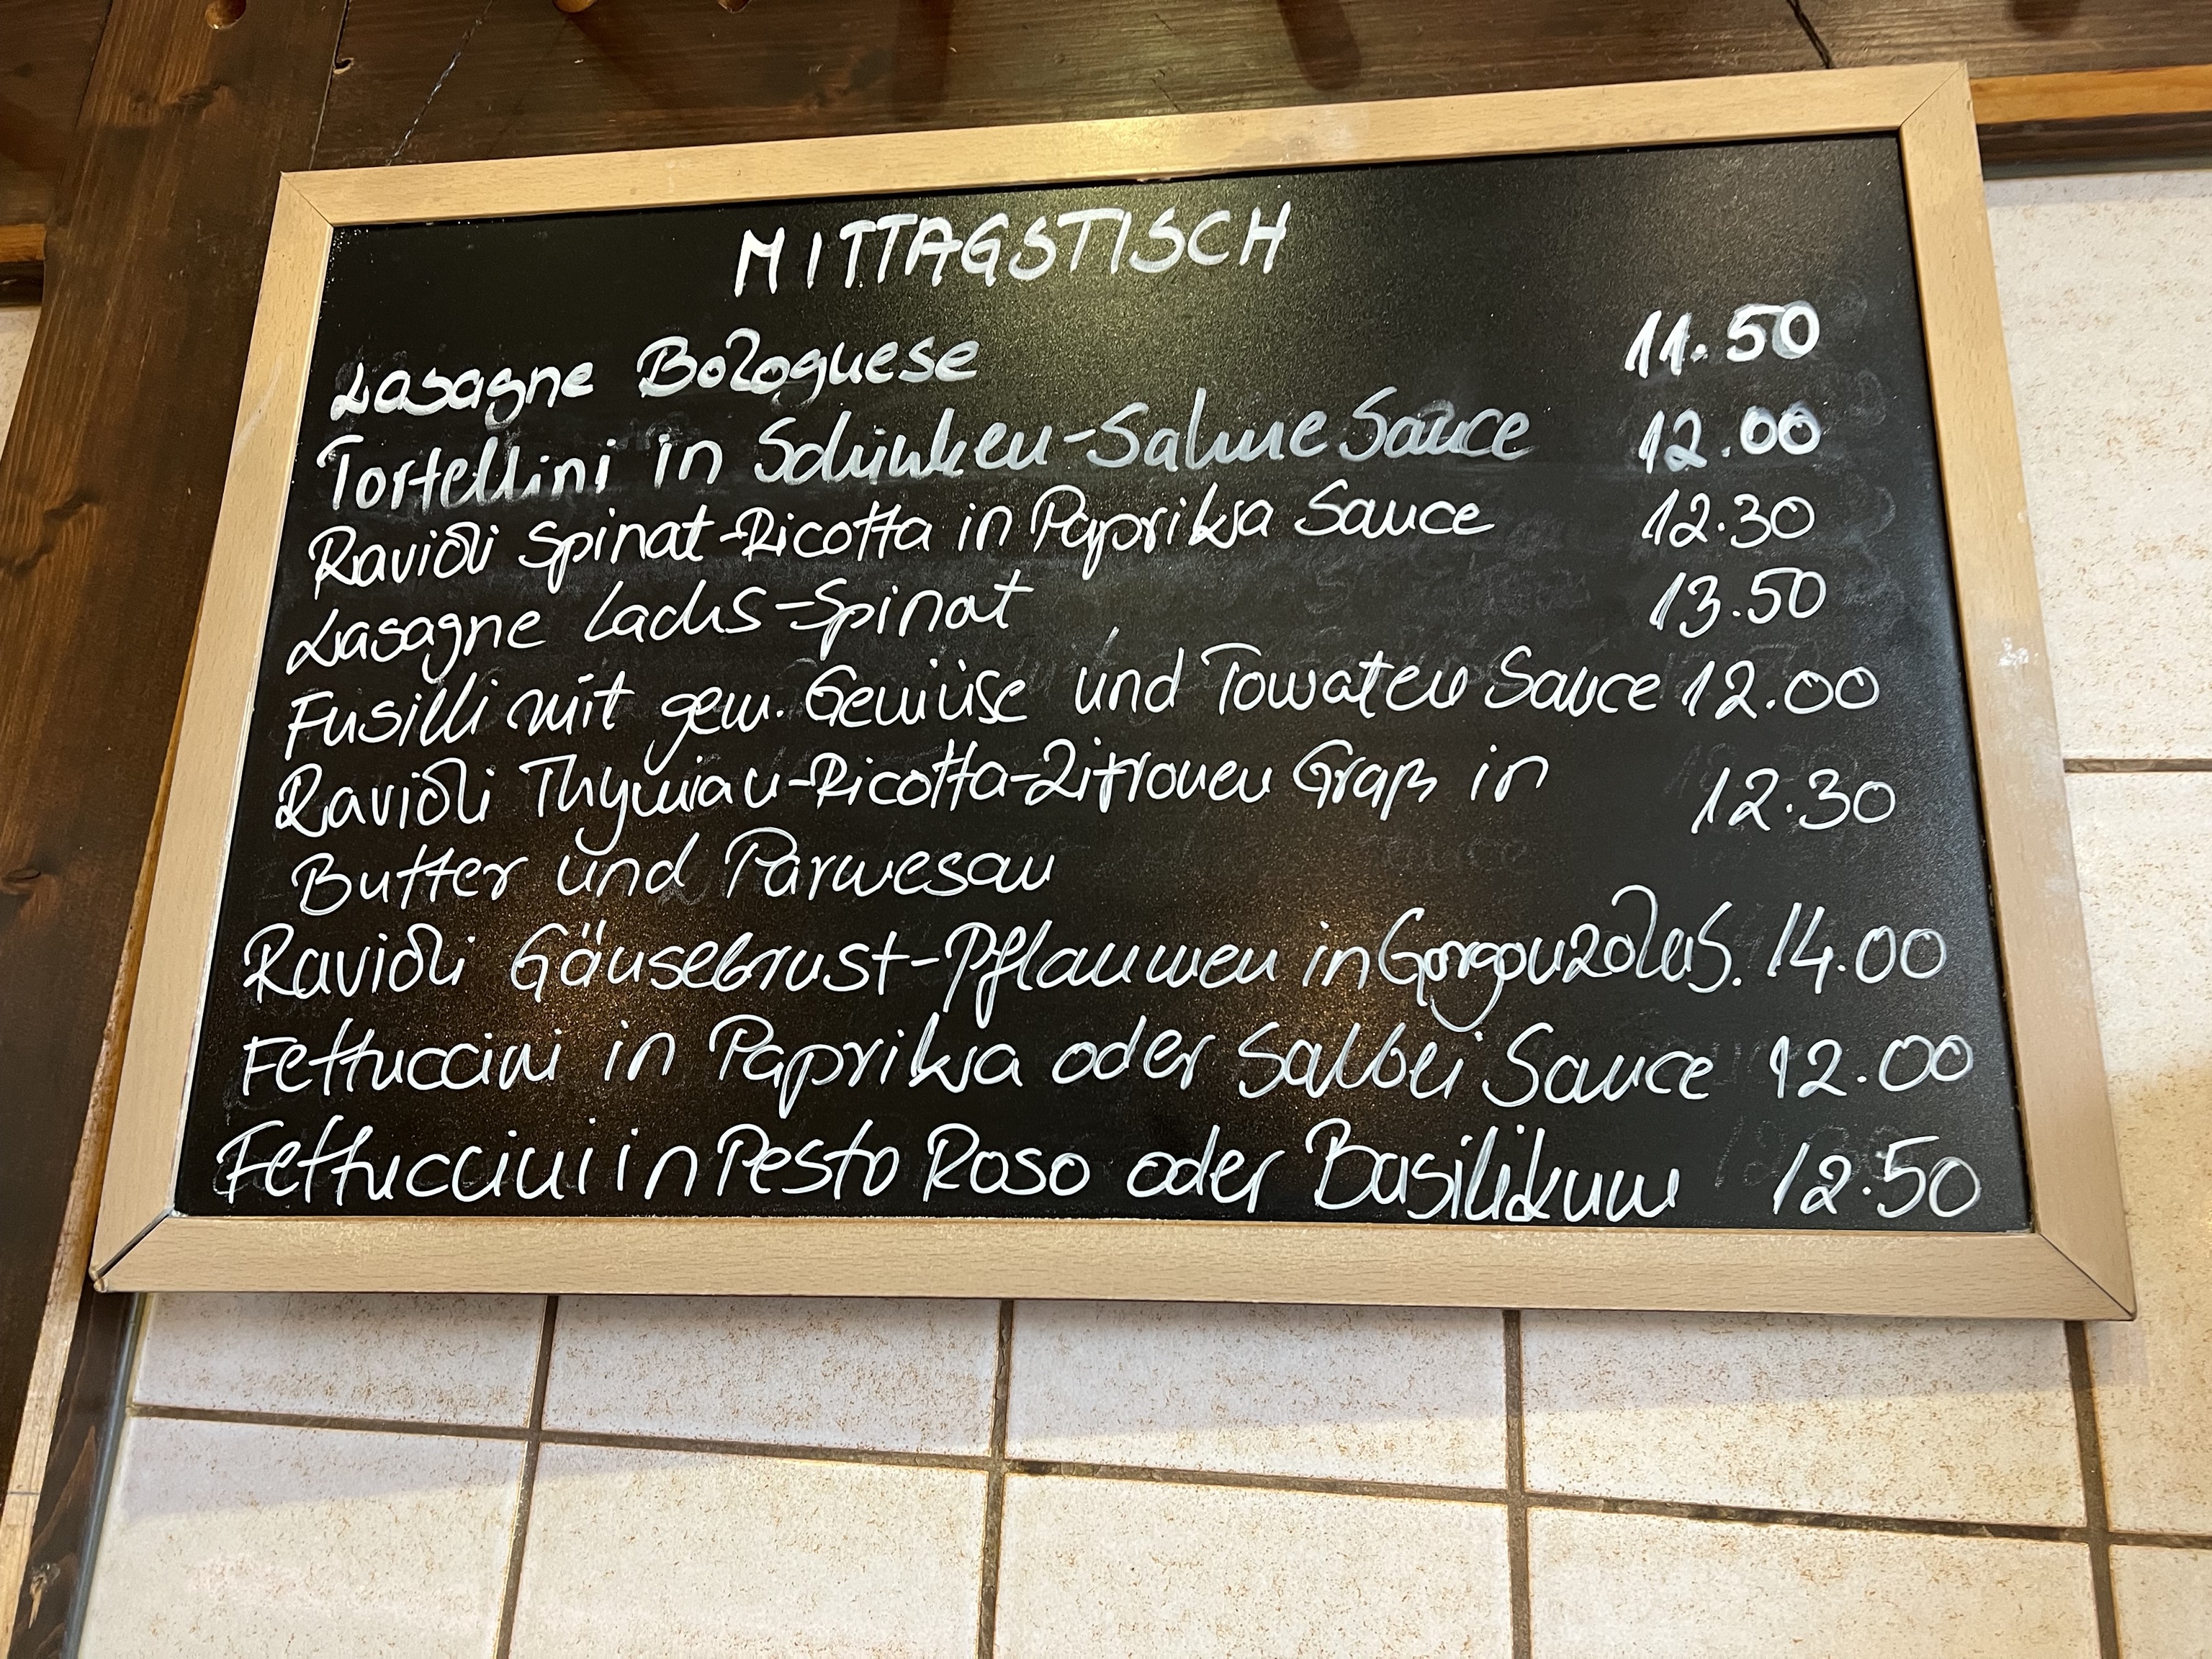 MITTAGSTISCH
Lasagne Bolognese 11.50
Tortellini in Schinken-Sahne Sauce 12.00
Ravioli Spinat-Ricotta in Paprika Sauce 12.30
Lasagne Lachs-Spinat 13.50
Fusilli mit gem. Gemüse und Tomaten Sauce 12.00
Ravioli Thymian-Ricotta-Zitronen Graß in 12.30
Butter und Parmesan
Ravioli Gänsebrust-Pflaumen in Gorgonzola S. 14.00
Fettuccini in Paprika oder Salbei Sauce 12.00
Fettuccini in Pesto Roso oder Basilikum 12.50